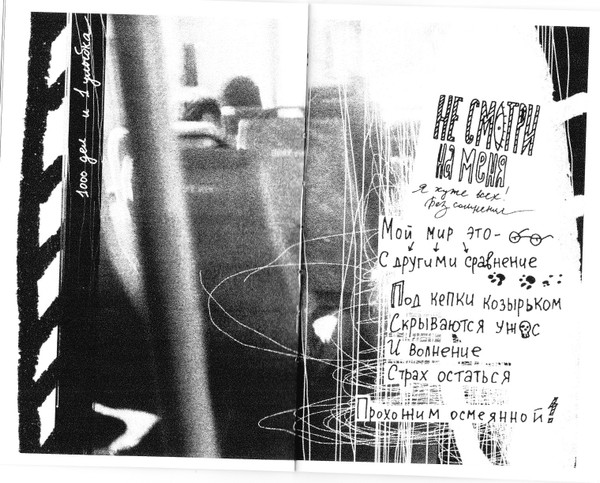 1000 дел и 1 улыбка
НЕ СМОТРИ
НА МЕНЯ
Я хуже всех!
Без сомнения
Мой мир это-
С другими сравнение
Под кепки козырьком
Скрываются ужас
И волнение
Страх остаться
Прохожим осмеянной!